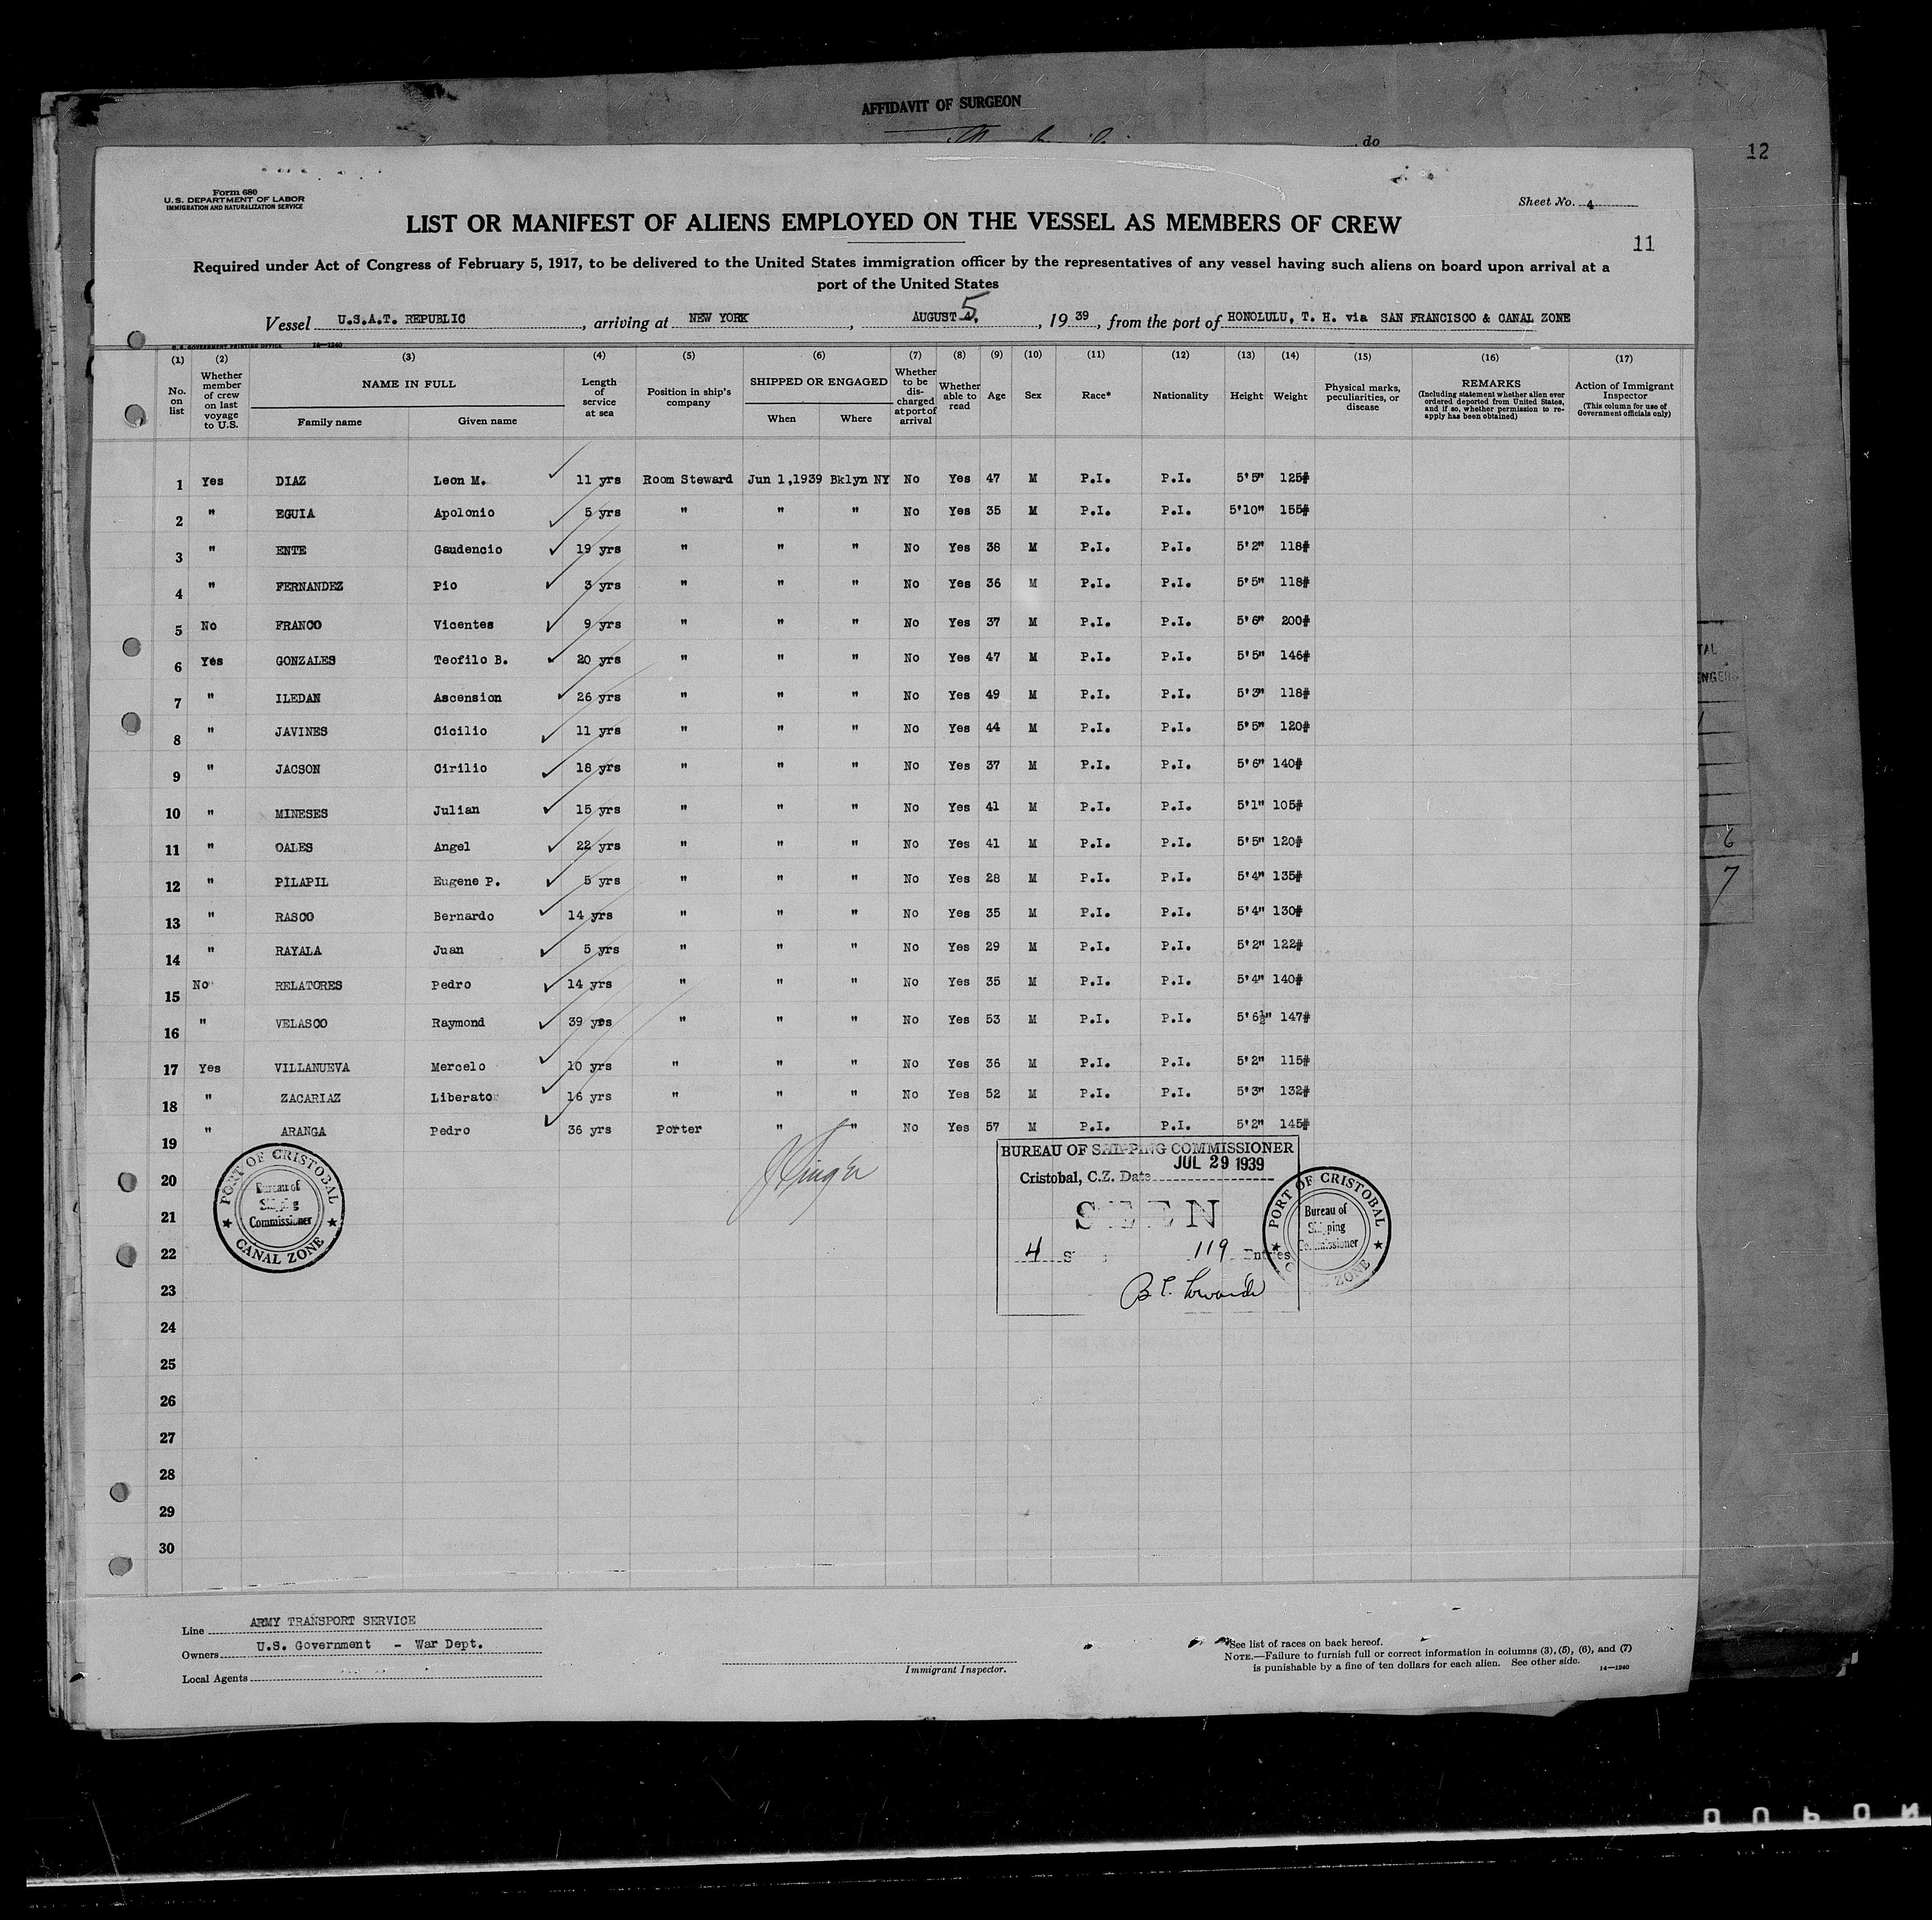 AFFIDAVIT OF SURGEON
do
12
Form 680
U.S. DEPARTMENT OF LABOR
IMMIGRATION AND NATURALIZATION SERVICE
Sheet No. 4
LIST OR MANIFEST OF ALIENS EMPLOYED ON THE VESSEL AS MEMBERS OF CREW
11
Required under Act of Congress of February 5, 1917, to be delivered to the United States immigration officer by the representatives of any vessel having such aliens on board upon arrival at a
port of the United States
Vessel U.S.A.T. REPUBLIC, arriving at NEW YORK, AUGUST 5, 1939, from the port of HONOLULU, T. H. via SAN FRANCISCO & CANAL ZONE
U.S. GOVERNMENT PRINTING OFFICE 14—1240
(1) (2) (3) (4) (5) (6) (7) (8) (9) (10) (11) (12) (13) (14) (15) (16) (17)
No. on list
Whether member of crew on last voyage to U.S.
NAME IN FULL
Family name
Given name
Length of service at sea
Position in ship's company
SHIPPED OR ENGAGED
When
Where
Whether to be discharged at port of arrival
Whether able to read
Age
Sex
Race*
Nationality
Height
Weight
Physical marks, peculiarities, or disease
REMARKS
(Including statement whether alien ever ordered deported from United States, and if so, whether permission to re-apply has been obtained)
Action of Immigrant Inspector
(This column for use of Government officials only)
1 Yes DIAZ Leon M. 11 yrs Room Steward Jun 1,1939 Bklyn NY No Yes 47 M P.I. P.I. 5'5" 125#
2 " EGUIA Apolonio 5 yrs " " " No Yes 35 M P.I. P.I. 5'10" 155#
3 " ENTE Gaudencio 19 yrs " " " No Yes 38 M P.I. P.I. 5'2" 118#
4 " FERNANDEZ Pio 3 yrs " " " No Yes 36 M P.I. P.I. 5'5" 118#
5 No FRANCO Vicentes 9 yrs " " " No Yes 37 M P.I. P.I. 5'6" 200#
6 Yes GONZALES Teofilo B. 20 yrs " " " No Yes 47 M P.I. P.I. 5'5" 146#
7 " ILEDAN Ascension 26 yrs " " " No Yes 49 M P.I. P.I. 5'3" 118#
8 " JAVINES Cicilio 11 yrs " " " No Yes 44 M P.I. P.I. 5'5" 120#
9 " JACSON Cirilio 18 yrs " " " No Yes 37 M P.I. P.I. 5'6" 140#
10 " MINESES Julian 15 yrs " " " No Yes 41 M P.I. P.I. 5'1" 105#
11 " OALES Angel 22 yrs " " " No Yes 41 M P.I. P.I. 5'5" 120#
12 " PILAPIL Eugene P. 5 yrs " " " No Yes 28 M P.I. P.I. 5'4" 135#
13 " RASCO Bernardo 14 yrs " " " No Yes 35 M P.I. P.I. 5'4" 130#
14 " RAYALA Juan 5 yrs " " " No Yes 29 M P.I. P.I. 5'2" 122#
15 No RELATORES Pedro 14 yrs " " " No Yes 35 M P.I. P.I. 5'4" 140#
16 " VELASCO Raymond 39 yrs " " " No Yes 53 M P.I. P.I. 5'6½" 147#
17 Yes VILLANUEVA Mercelo 10 yrs " " " No Yes 36 M P.I. P.I. 5'2" 115#
18 " ZACARIAZ Liberato 16 yrs " " " No Yes 52 M P.I. P.I. 5'3" 132#
19 " ARANGA Pedro 36 yrs Porter " " No Yes 57 M P.I. P.I. 5'2" 145#
20
21
22
23
24
25
26
27
28
29
30
PORT OF CRISTOBAL
Bureau of
Shipping
Commissioner
CANAL ZONE
BUREAU OF SHIPPING COMMISSIONER
Cristobal, C.Z. Date JUL 29 1939
SEEN
4 119 Entries
PORT OF CRISTOBAL
Bureau of
Shipping
Commissioner
ZONE
TAL
ENGERS
6
7
Line ARMY TRANSPORT SERVICE
Owners U.S. Government - War Dept.
Local Agents
Immigrant Inspector.
*See list of races on back hereof.
NOTE.—Failure to furnish full or correct information in columns (3), (5), (6), and (7)
is punishable by a fine of ten dollars for each alien. See other side. 14—1240